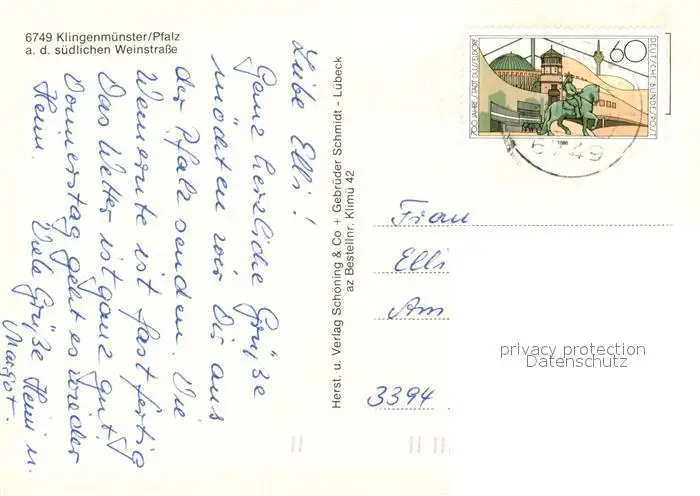 6749 Klingenmünster/Pfalz
a. d. südlichen Weinstraße
Liebe Elli!
Ganz herzliche Grüße
möchten wir Dir aus
der Pfalz senden. Die
Weinernte ist fast fertig
Das Wetter ist ganz gut,
Donnerstag geht es wieder
Heim.
Viele Grüße Heini u.
Margot.
Herst. u. Verlag Schöning & Co + Gebrüder Schmidt - Lübeck
az Bestellnr. Klimü 42
700 JAHRE STADT DÜSSELDORF
60
DEUTSCHE BUNDESPOST
1988
6749
Frau
Elli
Am
3394
privacy protection
Datenschutz